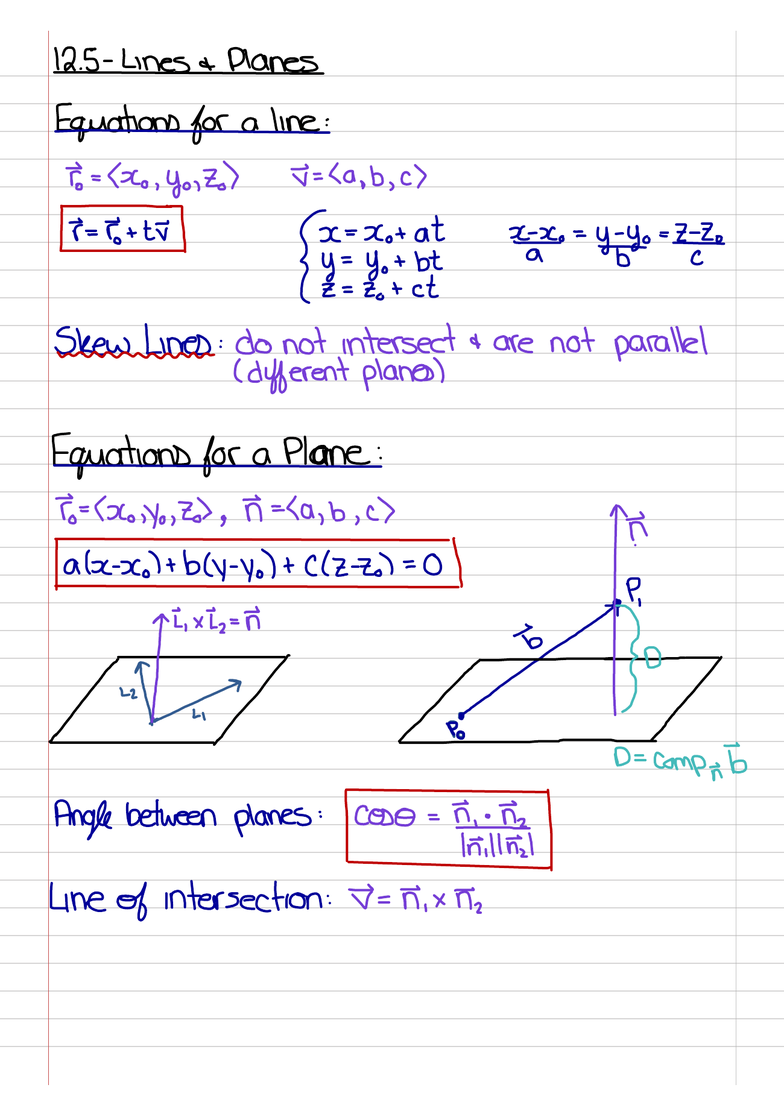 12.5 - Lines & Planes
Equations for a line:
r⃗₀ = ⟨x₀, y₀, z₀⟩ v⃗ = ⟨a, b, c⟩
r⃗ = r⃗₀ + tv⃗
x = x₀ + at
y = y₀ + bt
z = z₀ + ct
(x-x₀)/a = (y-y₀)/b = (z-z₀)/c
Skew Lines: do not intersect & are not parallel
(different planes)
Equations for a Plane:
r⃗₀ = ⟨x₀, y₀, z₀⟩, n⃗ = ⟨a, b, c⟩
a(x-x₀) + b(y-y₀) + c(z-z₀) = 0
L⃗₁ × L⃗₂ = n⃗
L₂
L₁
n⃗
P₁
b⃗
D
P₀
D = comp_n⃗ b⃗
Angle between planes: cosθ = (n⃗₁ · n⃗₂)/(|n⃗₁||n⃗₂|)
Line of intersection: v⃗ = n⃗₁ × n⃗₂